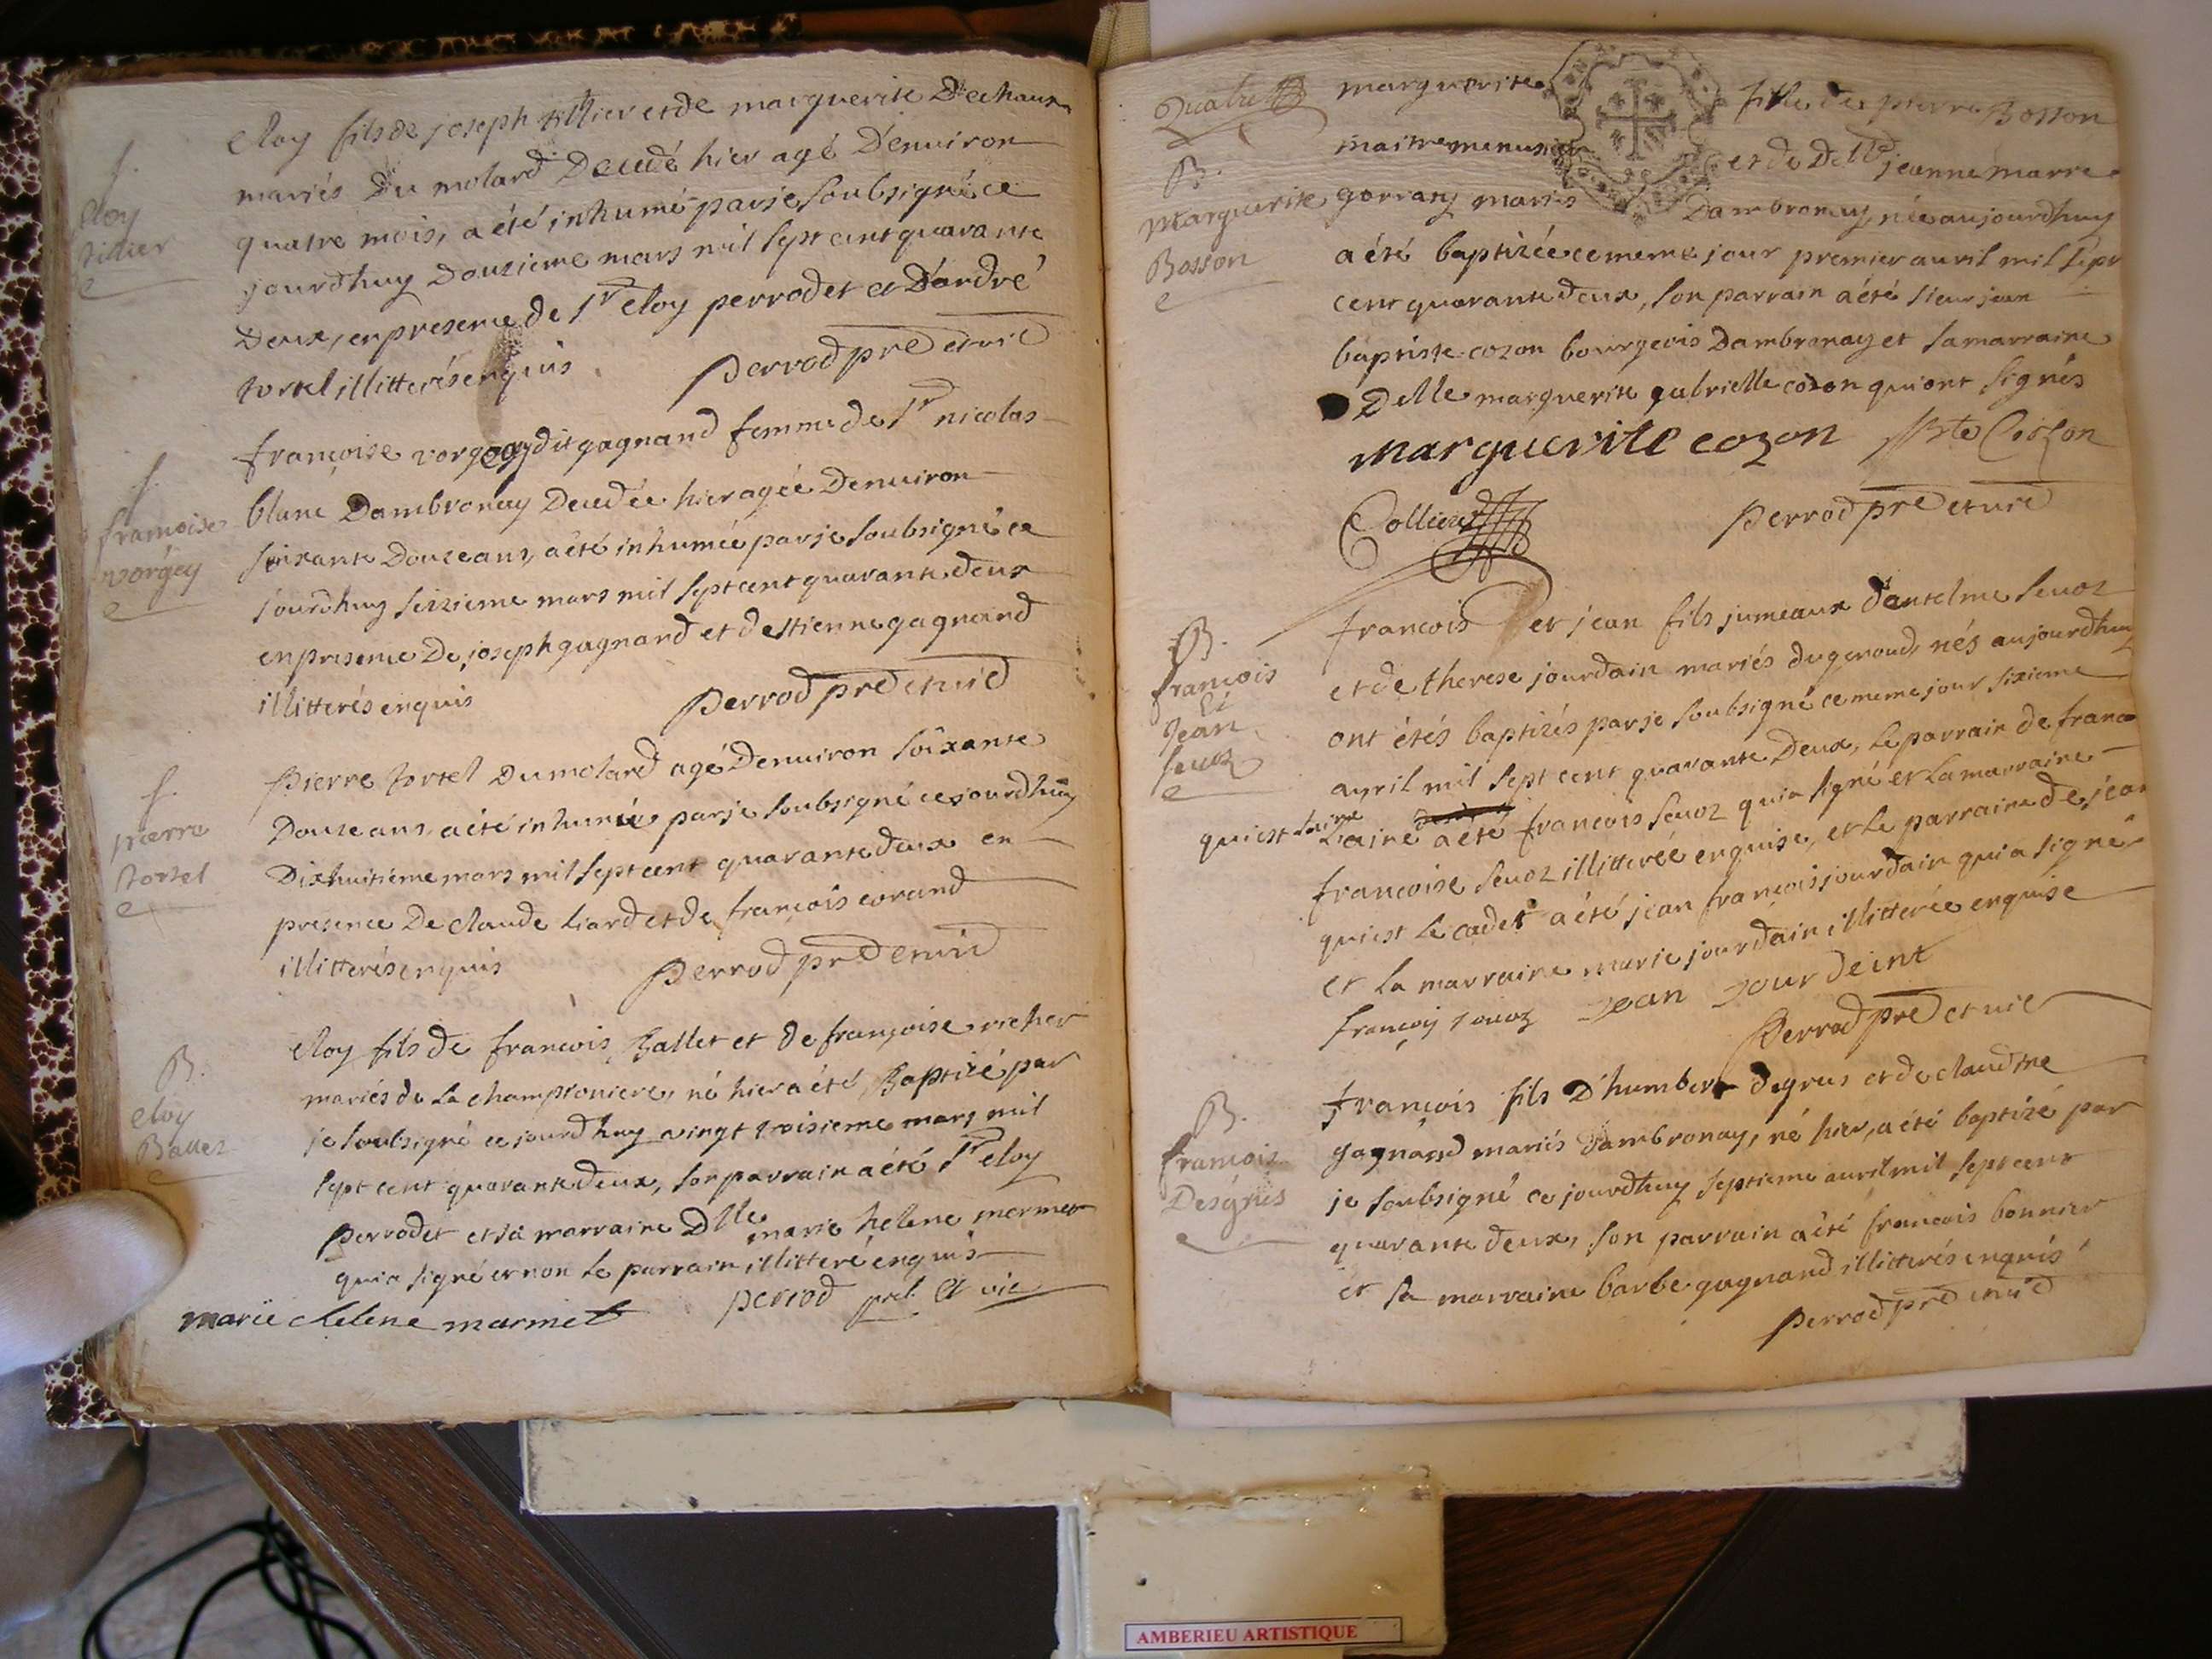 f.
eloy
tillier
eloy fils de joseph tillier et de marguerite Dechaux
mariés Du molard Decedé hier agé D'environ
quatre mois, a été inhumé par je soubsigné ce
jourdhuy Douzieme mars mil sept cent quarante
Deux, en presence de Sr eloy perrodet et D'andré
tortel illitterés enquis
perrod pre et vic
f.
francoise
vorgey
françoise vorgey dit gagnand femme de Sr nicolas
blanc Dambronay Decedée hier agée Denviron
soixante Douze ans, a été inhumée par je soubsigné ce
jourdhuy seizieme mars mil sept cent quarante deux
en presence De joseph gagnand et destienne gagnand
illitterés enquis
perrod pre et vic
f.
pierre
tortel
Pierre tortel Du molard agé Denviron soixante
Douze ans a été inhumé par je soubsigné ce jourdhuy
Dixhuitieme mars mil sept cent quarante deux en
presence De claude liard et de françois evrand
illitterés enquis
perrod pre et vic
B.
eloy
Ballet
eloy fils de francois Ballet et de françoise richer
mariés de la championiere, né hier a été Baptizé par
je soubsigné ce jourdhuy vingt troisieme mars mil
sept cent quarante deux, son parrain a été Sr eloy
perrodet et sa marraine Dlle marie helene mermet
qui a signé et non le parrain illitteré enquis
marie helene marmet
perrod pre et vic
quatre
B.
marguerite
Bosson
marguerite fille de pierre Bosson
maitre menusier et de Delle jeanne marre
gorrany mariés Dambronay, née aujourdhuy
a été baptizée ce meme jour premier avril mil sept
cent quarante deux, son parrain a été sieur jean
baptiste cozon bourgeois Dambronay et sa marraine
Delle marguerite gabrielle cozon qui ont signés
marguerite cozon Cozon
Collier
perrod pre et vic
B.
francois
et
Jean
seuoz
francois et jean fils jumeaux d'antelme seuoz
et de therese jourdain mariés du genoud, nés aujourdhuy
ont étés baptizés par je soubsigné ce meme jour sixieme
avril mil sept cent quarante Deux, le parrain de franco
qui est l'ainé a été francois seuoz qui a signé et la marraine
francoise seuoz illitterée enquise, et le parraine de jean
qui est le cadet a été jean françois jourdain qui a signé
et la marraine marie jourdain illitterée enquise
françoy souoz Jean Jourdeint
Perrod pre et vic
B.
francois
Desgrus
françois fils D'humbert degrus et de claudine
gagnand mariés dambronay, né hier, a été baptizé par
je soubsigné ce jourdhuy septieme avril mil sept cent
quarante deux, son parrain a été francois bonnier
et sa marraine barbe gagnand illitterés enquis
perrod pre et vic
AMBERIEU ARTISTIQUE